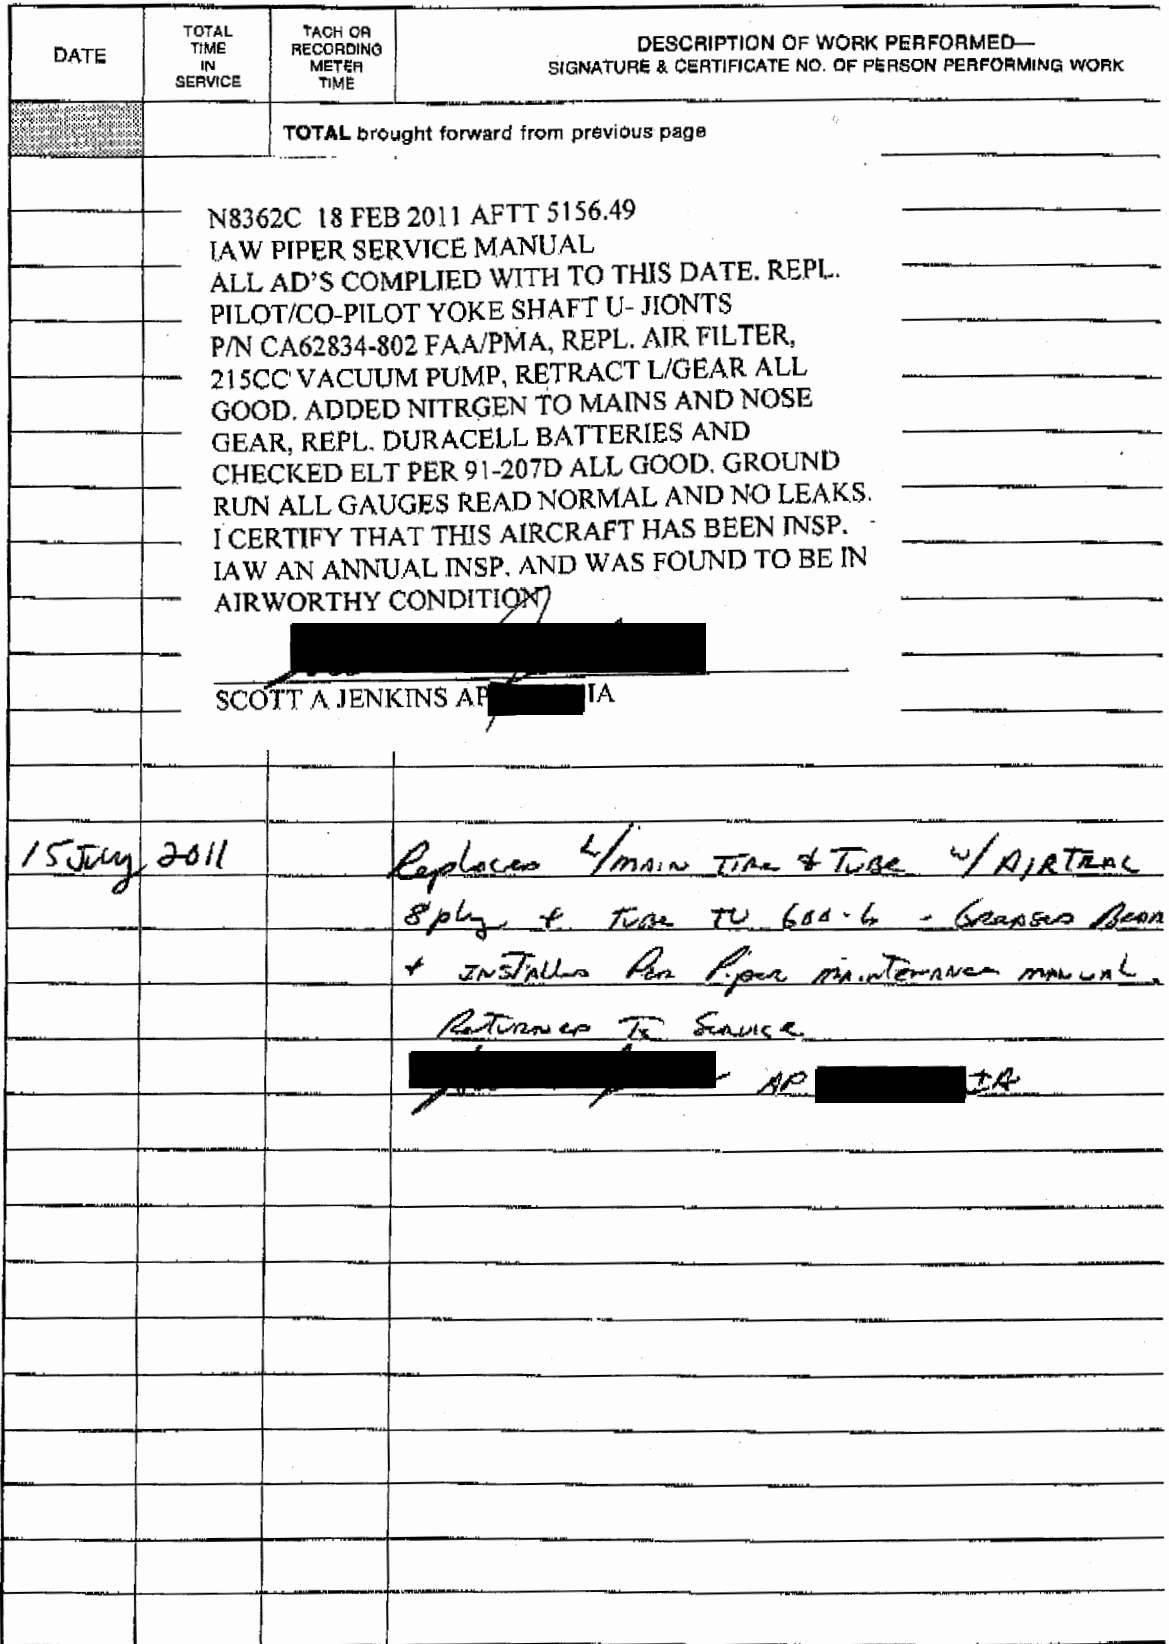 DATE
TOTAL
TIME
IN
SERVICE
TACH OR
RECORDING
METER
TIME
DESCRIPTION OF WORK PERFORMED—
SIGNATURE & CERTIFICATE NO. OF PERSON PERFORMING WORK
TOTAL brought forward from previous page
N8362C 18 FEB 2011 AFTT 5156.49
IAW PIPER SERVICE MANUAL
ALL AD'S COMPLIED WITH TO THIS DATE. REPL.
PILOT/CO-PILOT YOKE SHAFT U- JIONTS
P/N CA62834-802 FAA/PMA, REPL. AIR FILTER,
215CC VACUUM PUMP, RETRACT L/GEAR ALL
GOOD. ADDED NITRGEN TO MAINS AND NOSE
GEAR, REPL. DURACELL BATTERIES AND
CHECKED ELT PER 91-207D ALL GOOD. GROUND
RUN ALL GAUGES READ NORMAL AND NO LEAKS.
I CERTIFY THAT THIS AIRCRAFT HAS BEEN INSP.
IAW AN ANNUAL INSP. AND WAS FOUND TO BE IN
AIRWORTHY CONDITION
SCOTT A JENKINS AP IA
15 July 2011 Replaced L/MAIN TIRE & TUBE W/ AIRTRAC
8 ply & TUBE TU 600-6 - Greased Bear
+ INSTALLED Per Piper MAINTENANCE MANUAL.
Returned To Service
AP IA